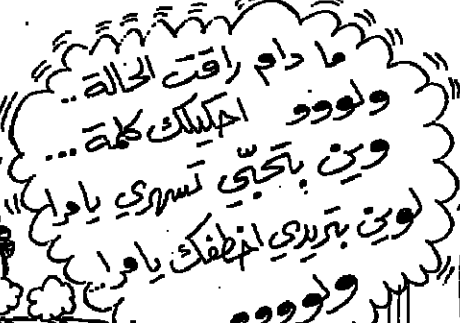 ما دام راقت الحالة ..
ولووو احكيلك كلمة ...
وين بتحبّي تسهري يا مرا
لوين بتريدي اخطفك يا مرا..
ولوووو